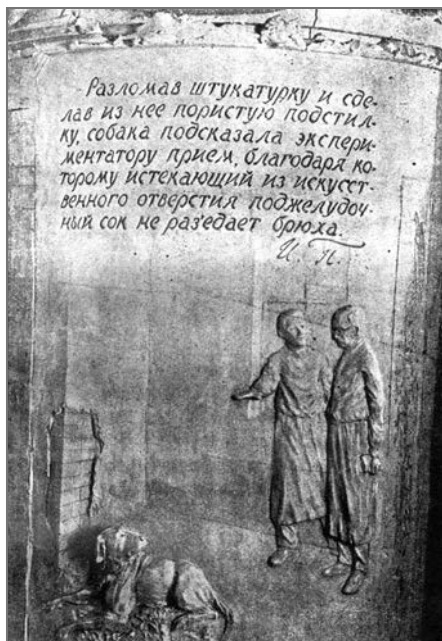 Разломав штукатурку и сде-
лав из нее пористую подстил-
ку, собака подсказала экспери-
ментатору прием, благодаря ко-
торому истекающий из искусст-
венного отверстия поджелудоч-
ный сок не раз'едает брюха.
И. П.